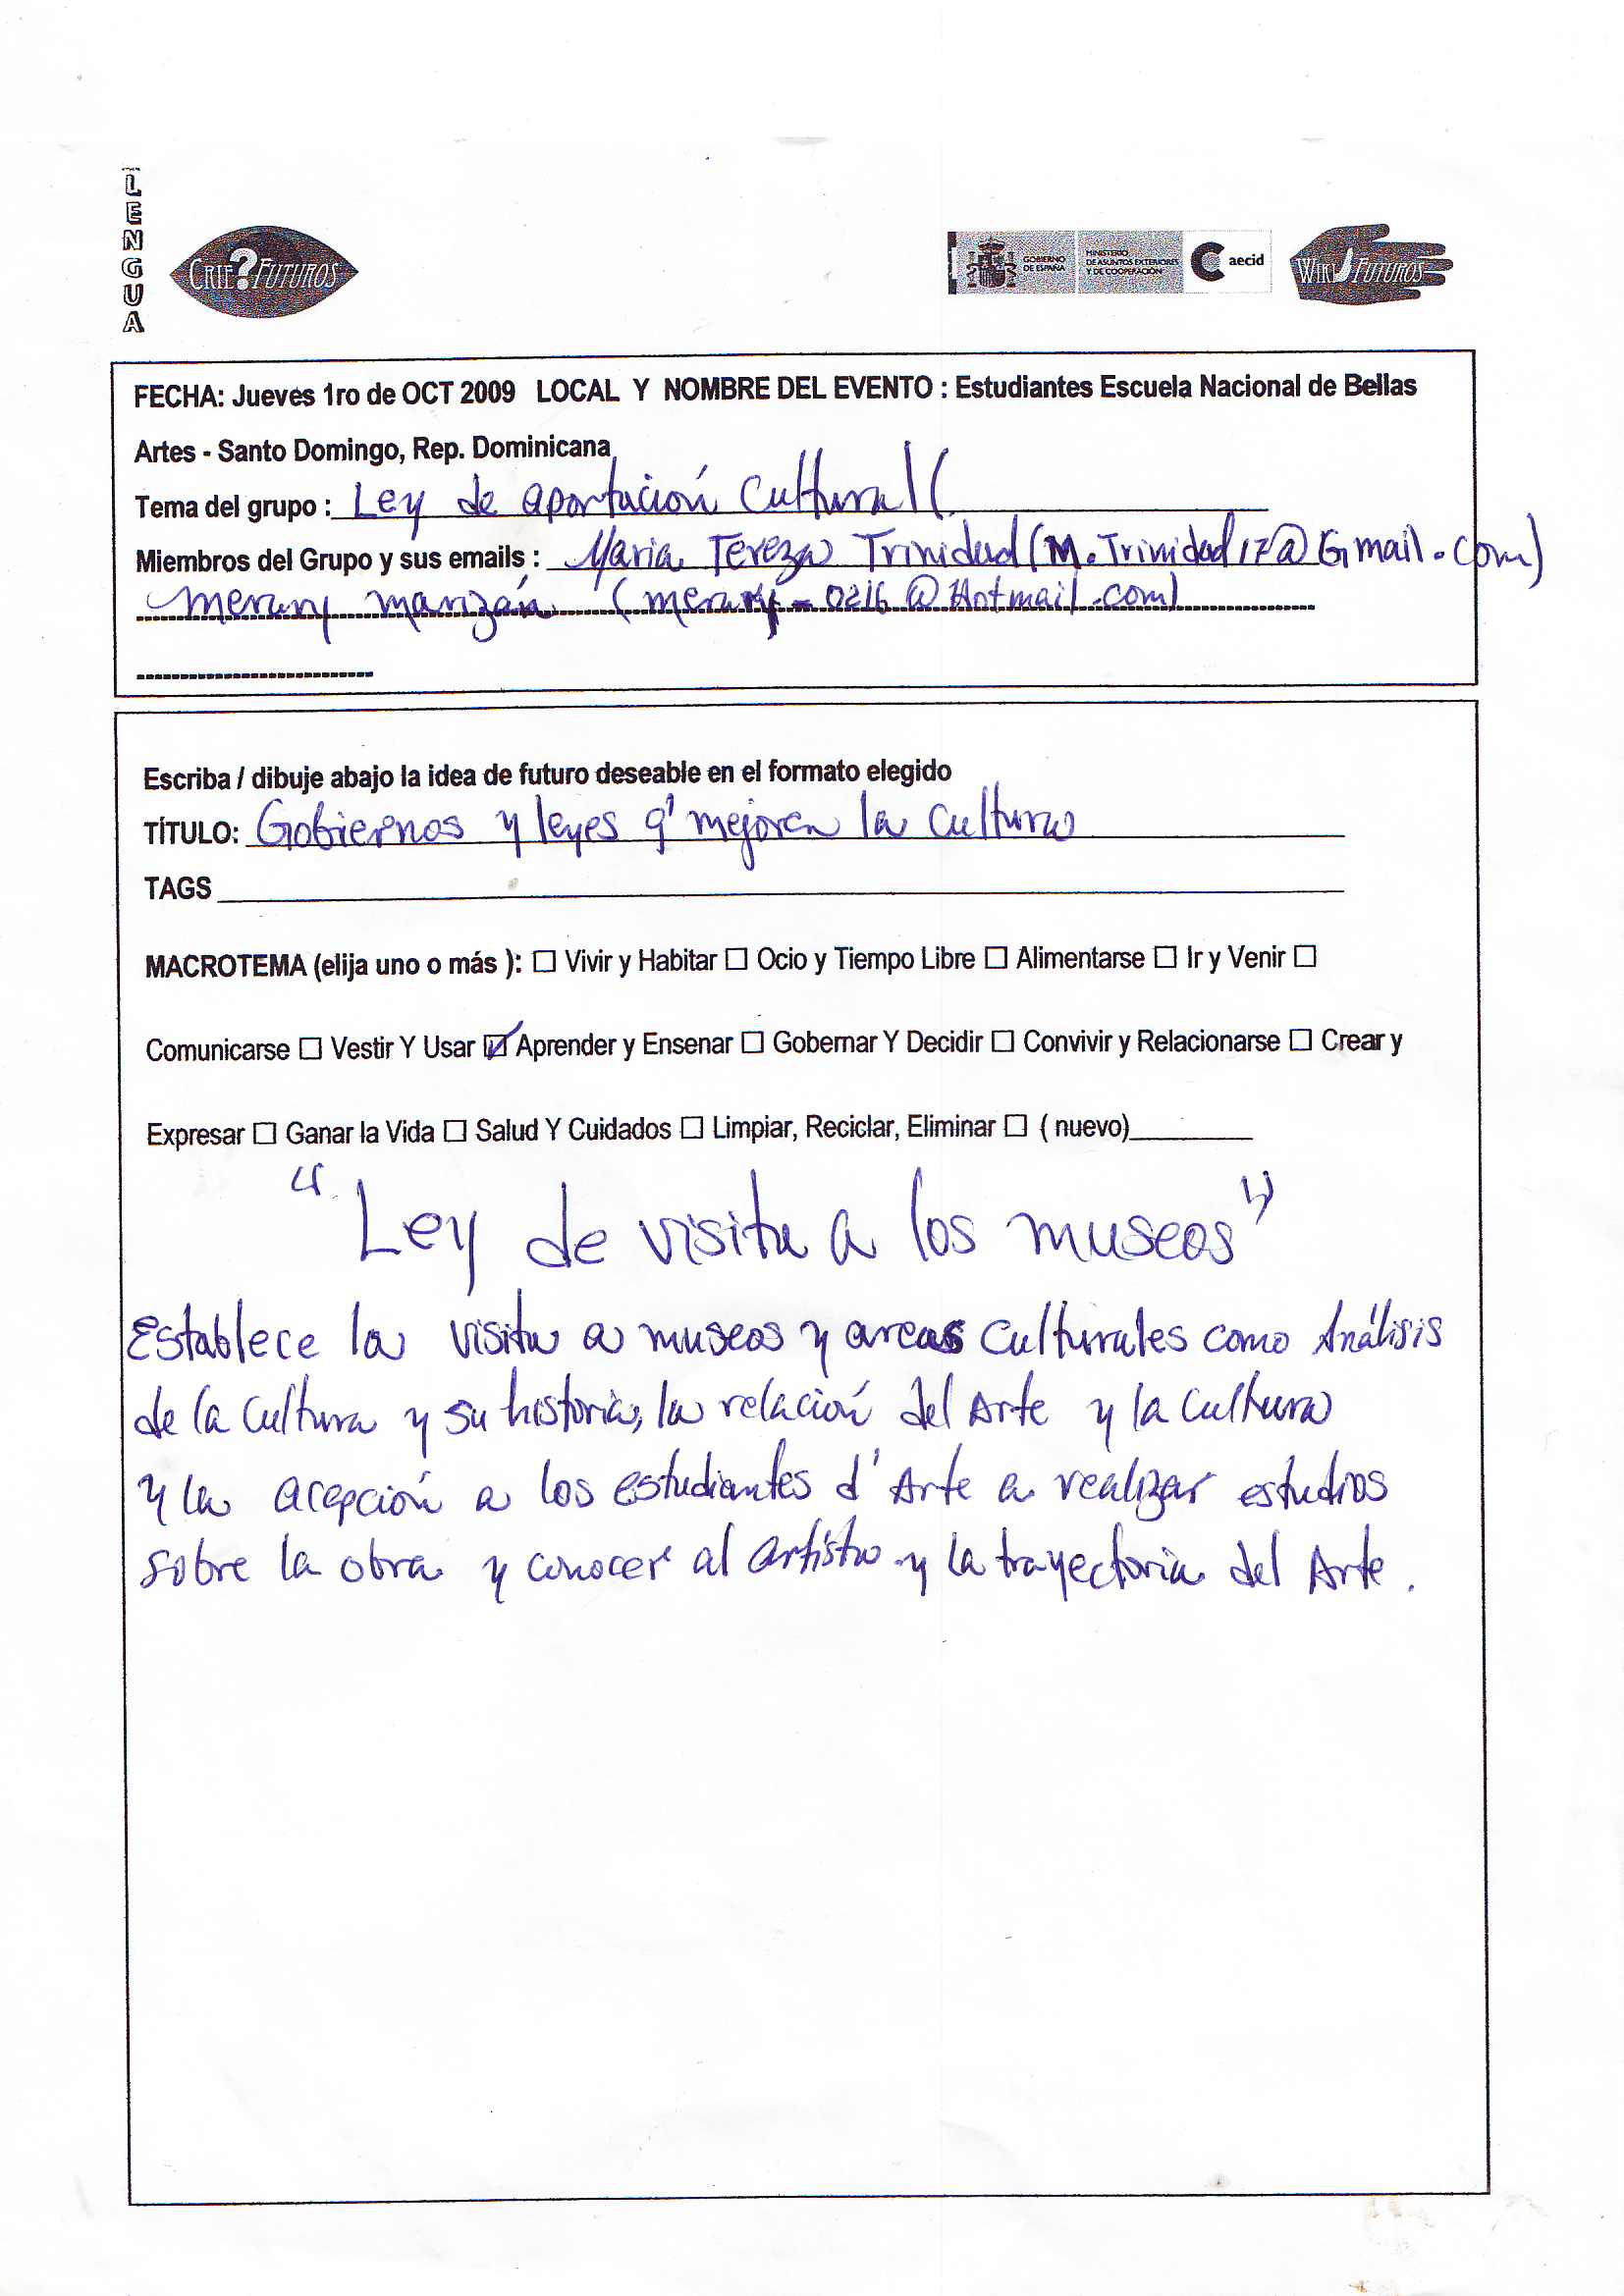 LENGUA
CRIE?FUTUROS
GOBIERNO DE ESPAÑA
MINISTERIO DE ASUNTOS EXTERIORES Y DE COOPERACIÓN
aecid
WIKI FUTUROS
FECHA: Jueves 1ro de OCT 2009 LOCAL Y NOMBRE DEL EVENTO : Estudiantes Escuela Nacional de Bellas
Artes - Santo Domingo, Rep. Dominicana
Tema del grupo : Ley de aportación Cultural (
Miembros del Grupo y sus emails : Maria Tereza Trinidad (M.Trinidad17@Gmail.com)
(@Hotmail.com)
Escriba / dibuje abajo la idea de futuro deseable en el formato elegido
TÍTULO: Gobiernos y leyes q' mejoren la Cultura
TAGS
MACROTEMA (elija uno o más ): ☐ Vivir y Habitar ☐ Ocio y Tiempo Libre ☐ Alimentarse ☐ Ir y Venir ☐
Comunicarse ☐ Vestir Y Usar ☑ Aprender y Ensenar ☐ Gobernar Y Decidir ☐ Convivir y Relacionarse ☐ Crear y
Expresar ☐ Ganar la Vida ☐ Salud Y Cuidados ☐ Limpiar, Reciclar, Eliminar ☐ ( nuevo)
"Ley de visita a los museos"
Establece la visita a museos y areas culturales como Análisis
de la Cultura y su historia, la relación del Arte y la Cultura
y la acepción a los estudiantes d' Arte a realizar estudios
sobre la obra y conocer al artista y la trayectoria del Arte.